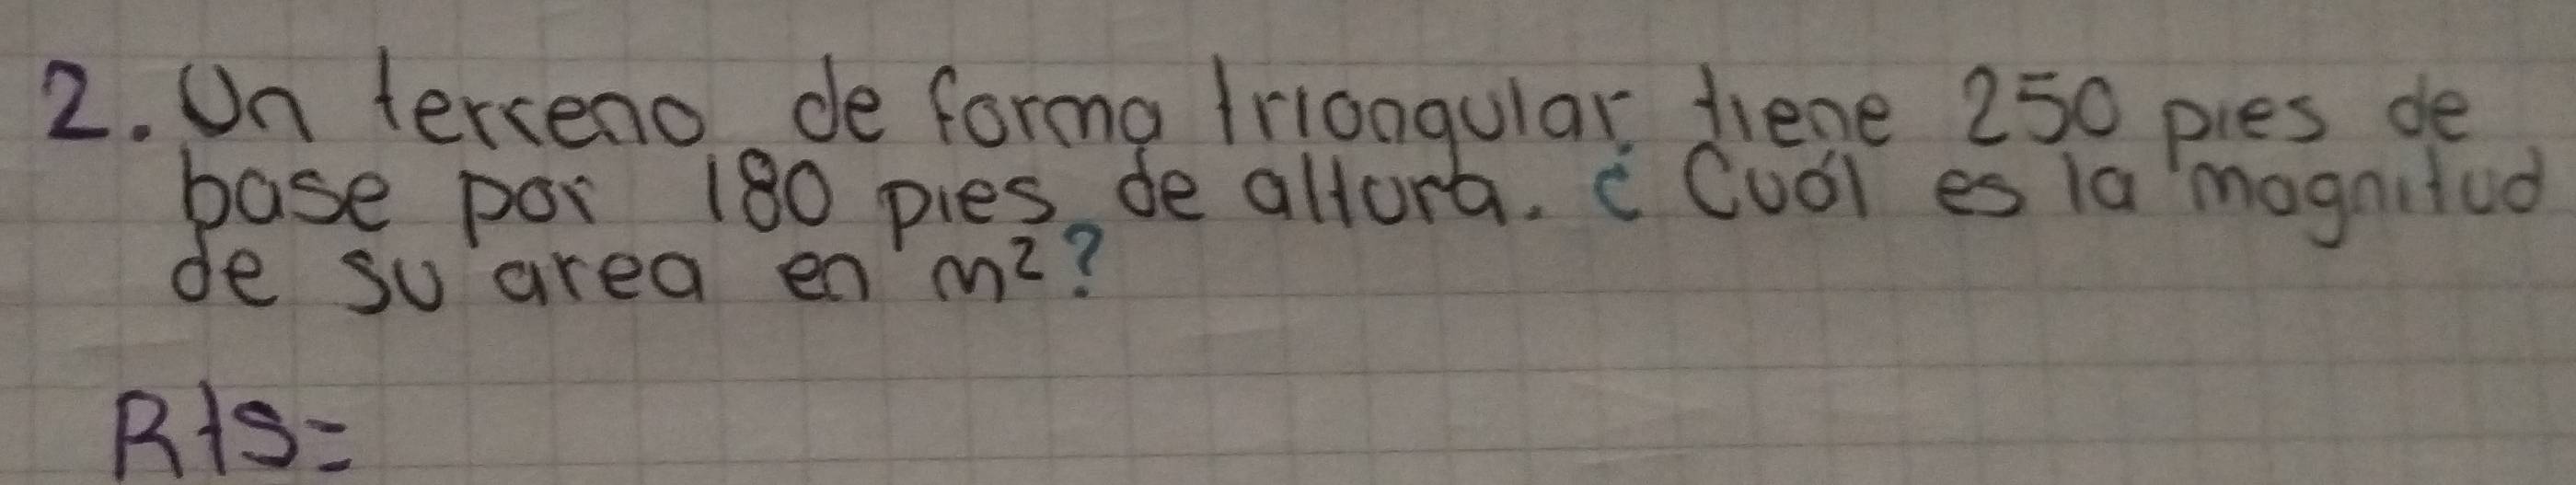 2. Un terreno de forma triangular tiene 250 pies de
base por 180 pies de altura. ¿Cuál es la magnitud
de su area en m²?
Rts=